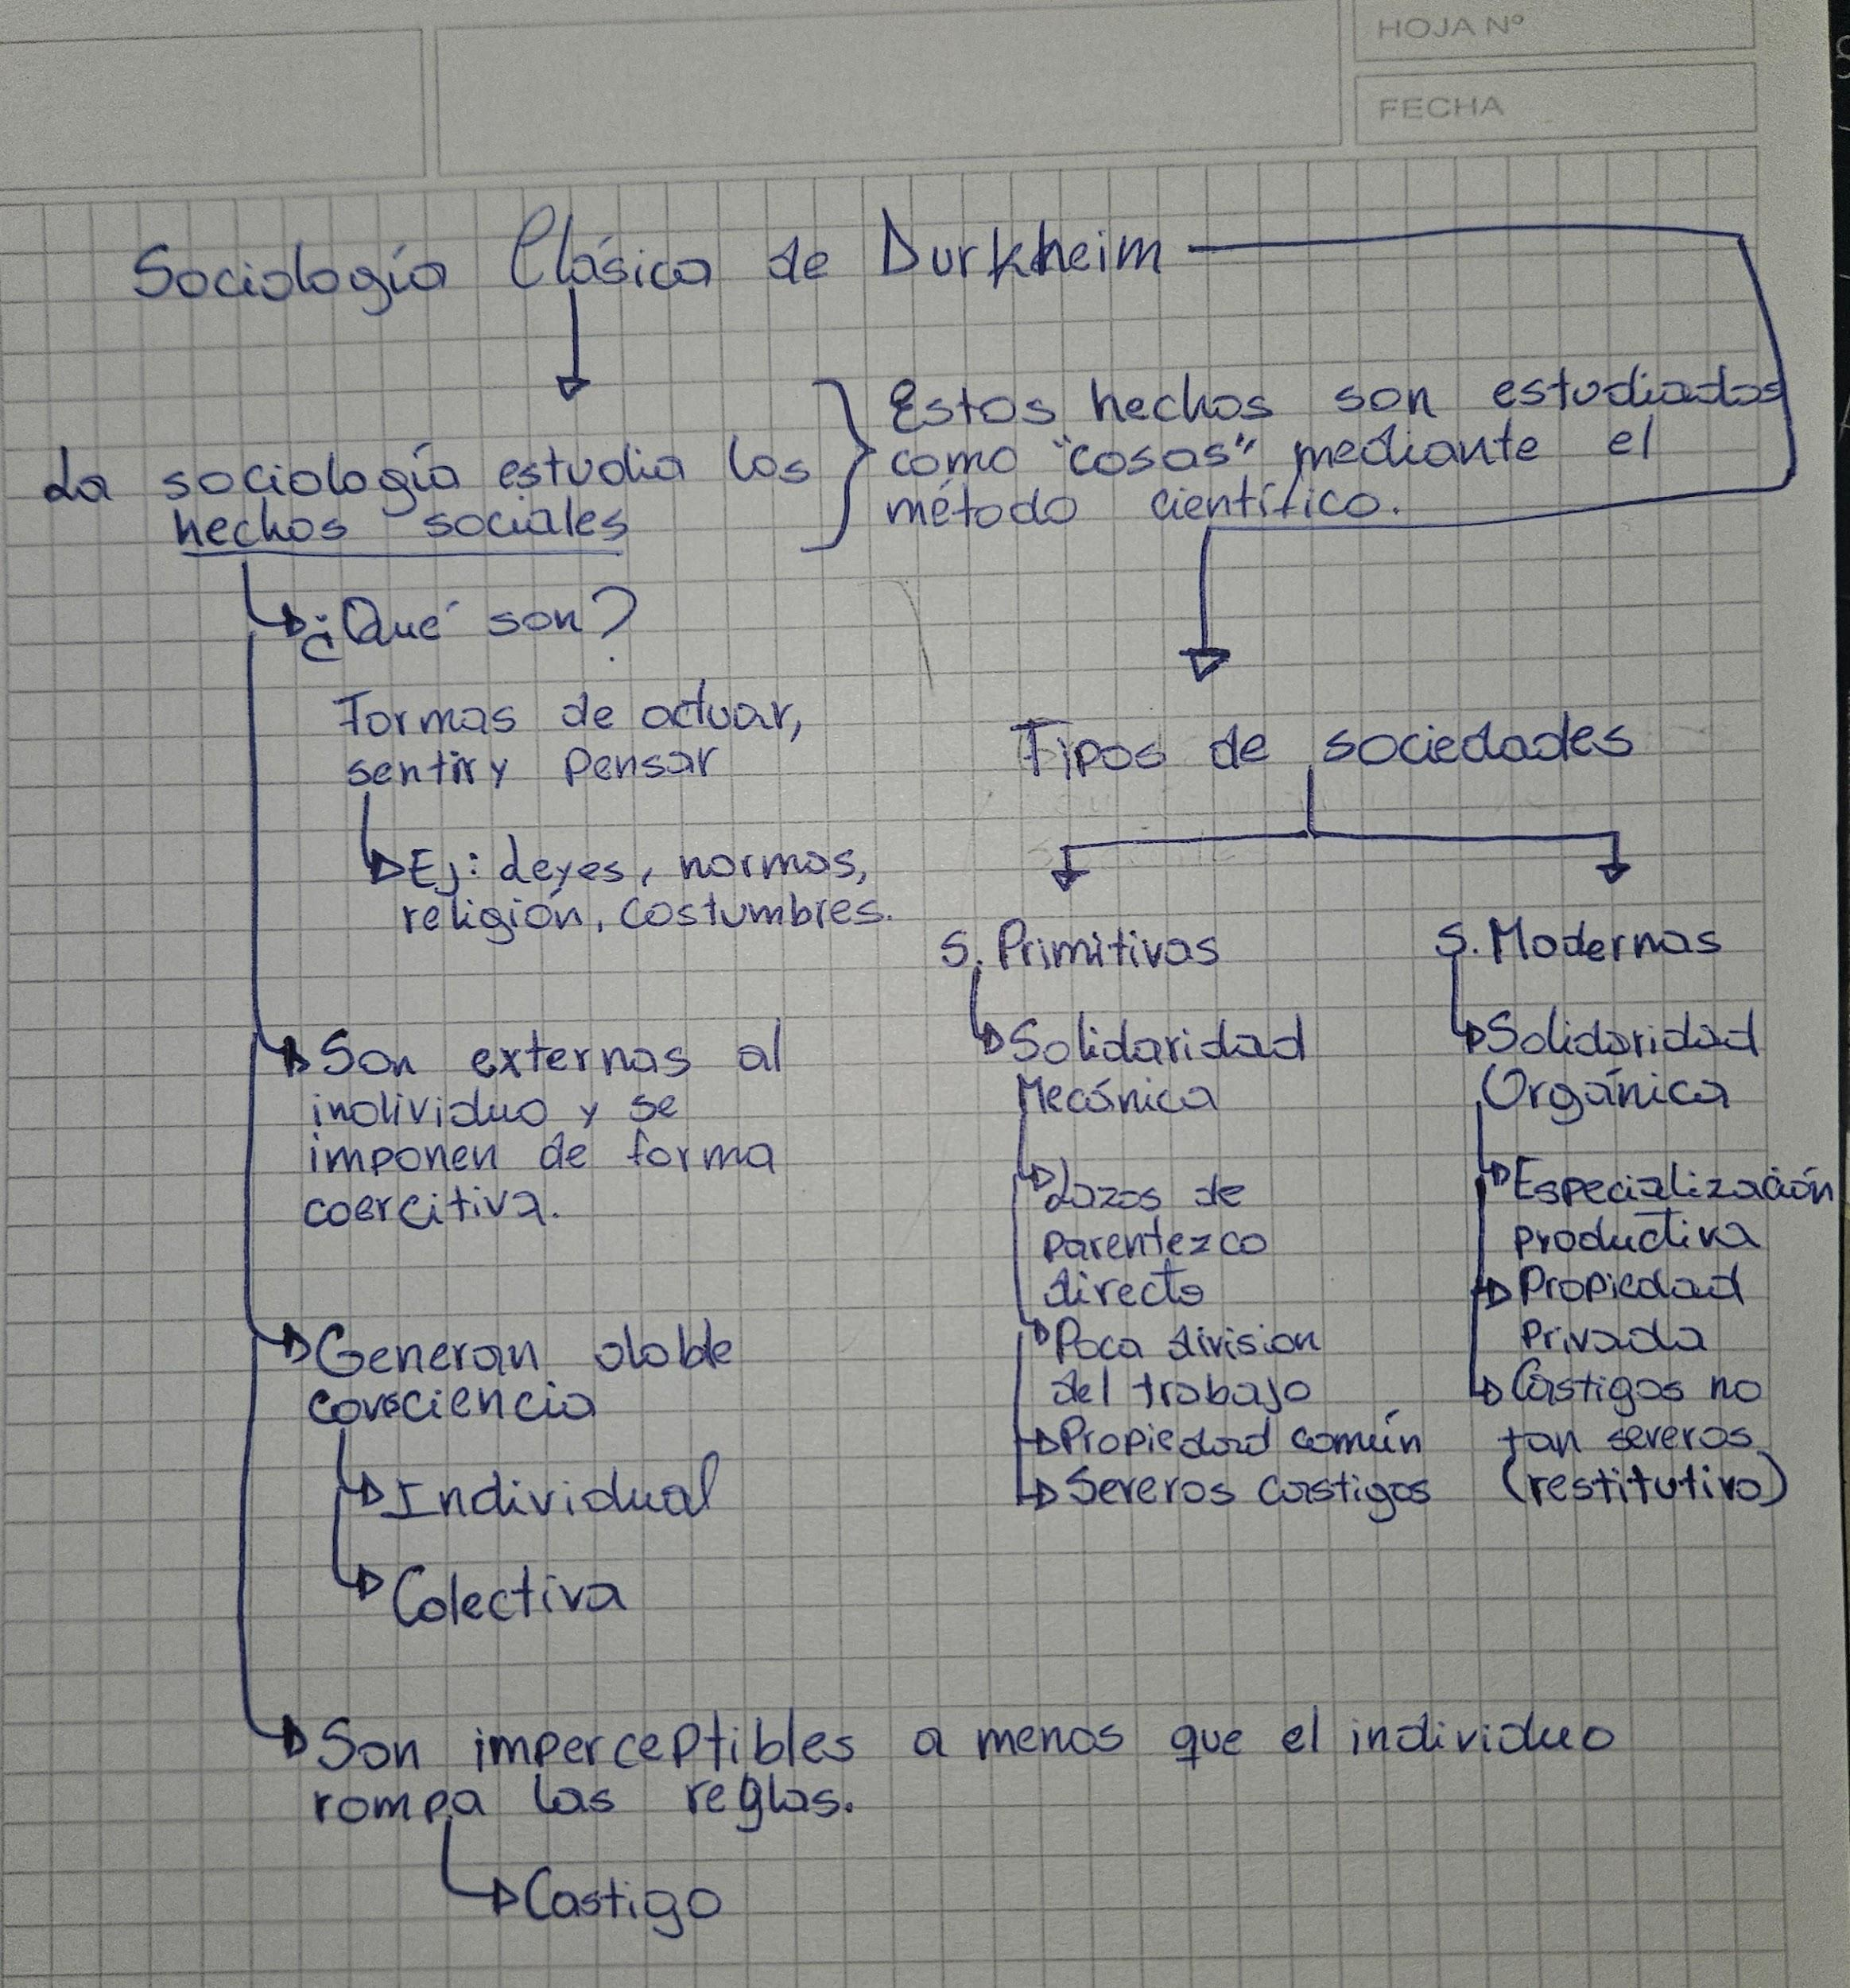 HOJA Nº
FECHA
Sociología Clásica de Durkheim
La sociología estudia los
hechos sociales
Estos hechos son estudiados
como "cosas" mediante el
método científico.
¿Qué son?
Formas de actuar,
sentir y pensar
Ej: Leyes, normas,
religión, costumbres.
Son externas al
individuo y se
imponen de forma
coercitiva.
Generan doble
consciencia
Individual
Colectiva
Son imperceptibles a menos que el individuo
rompa las reglas.
Castigo
Tipos de sociedades
S. Primitivas
Solidaridad
Mecánica
Lazos de
parentezco
directo
Poca division
del trabajo
Propiedad común
Severos castigos
S. Modernas
Solidaridad
Orgánica
Especialización
productiva
Propiedad
Privada
Castigos no
tan severos
(restitutivo)